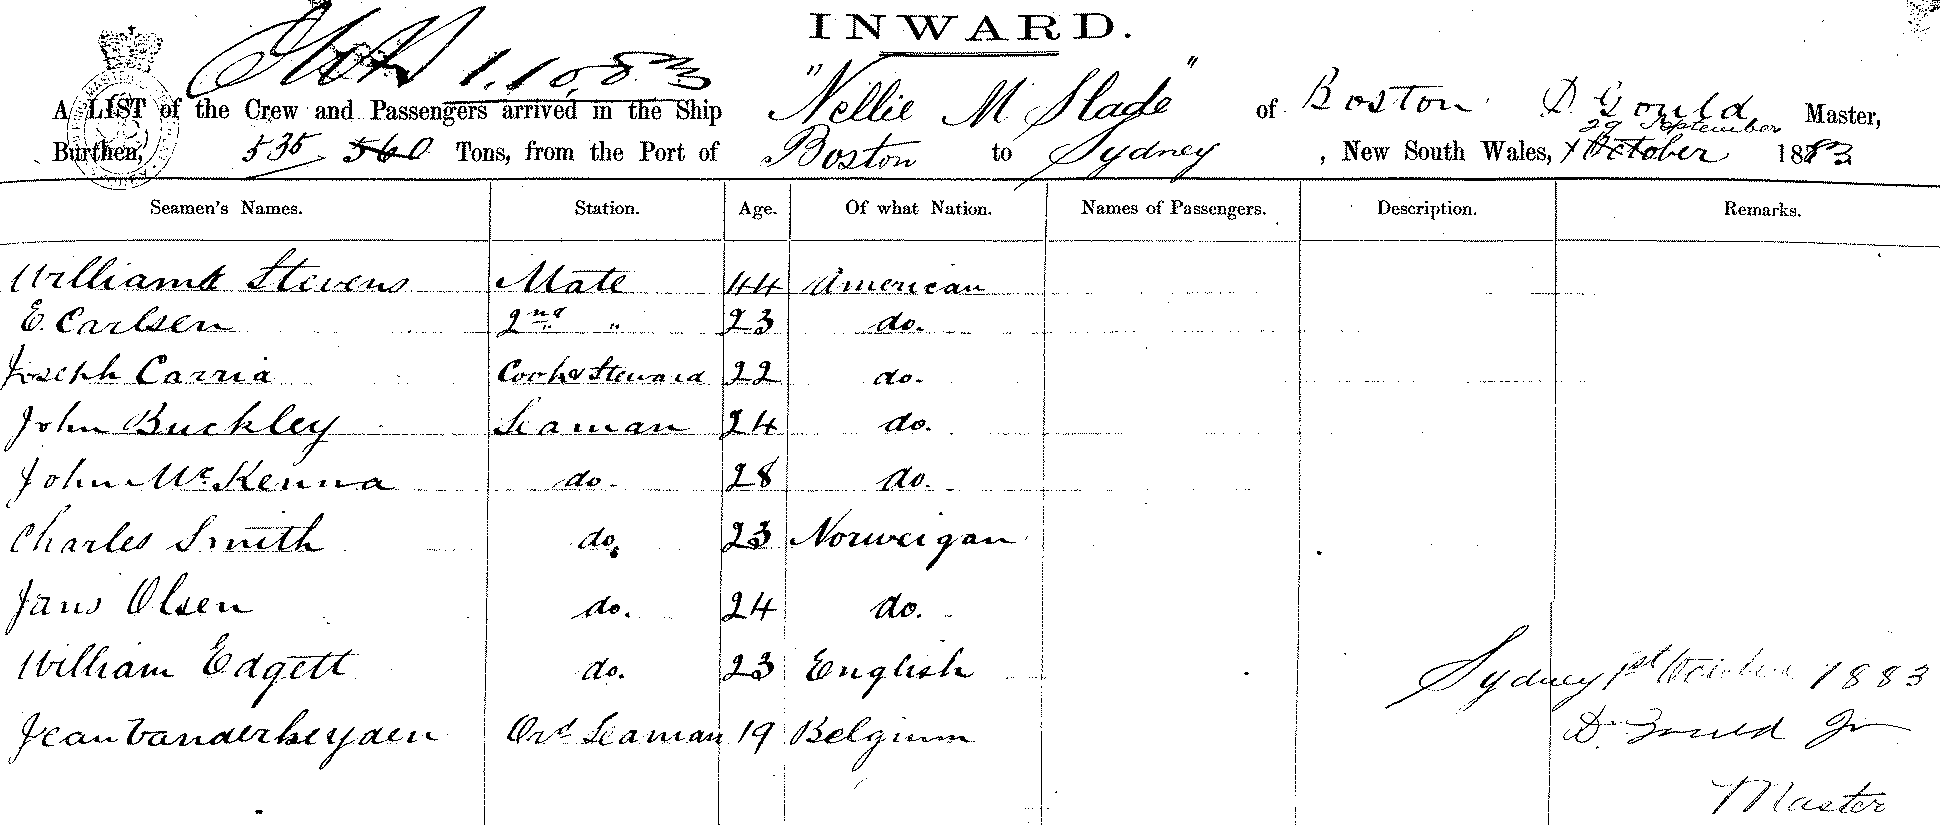 INWARD.
1.10.83
A LIST of the Crew and Passengers arrived in the Ship "Nellie M Slade" of Boston D. Gould Master,
29 September
Burthen, 535 560 Tons, from the Port of Boston to Sydney, New South Wales, 1 October 1883
Seamen's Names. Station. Age. Of what Nation. Names of Passengers. Description. Remarks.
William Stevens Mate 44 American
E. Carlsen 2nd " 23 do.
Joseph Carria Cook & Steward 22 do.
John Buckley Seaman 24 do.
John McKenna do. 28 do.
Charles Smith do. 23 Norweigan
Jans Olsen do. 24 do.
William Edgett do. 23 English
Sydney 1st October 1883
Jean Vanderheyden Ord Seaman 19 Belgium
D. Gould Jr
Master